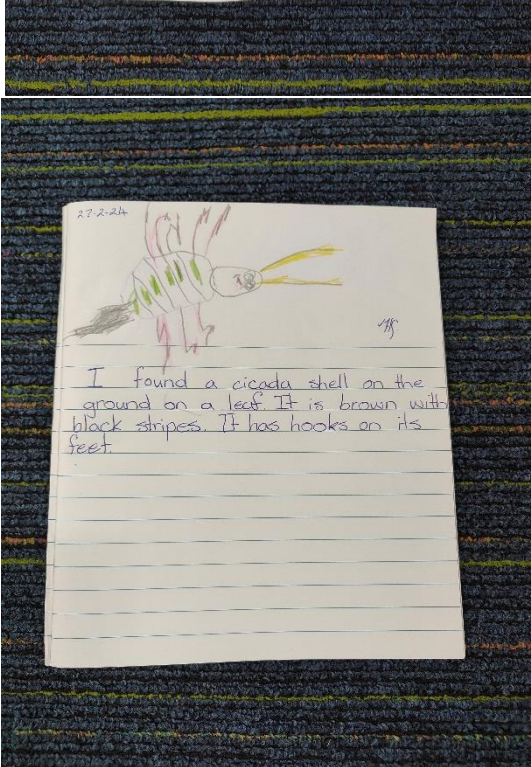 27-2-24
I found a cicada shell on the
ground on a leaf. It is brown with
black stripes. It has hooks on its
feet.